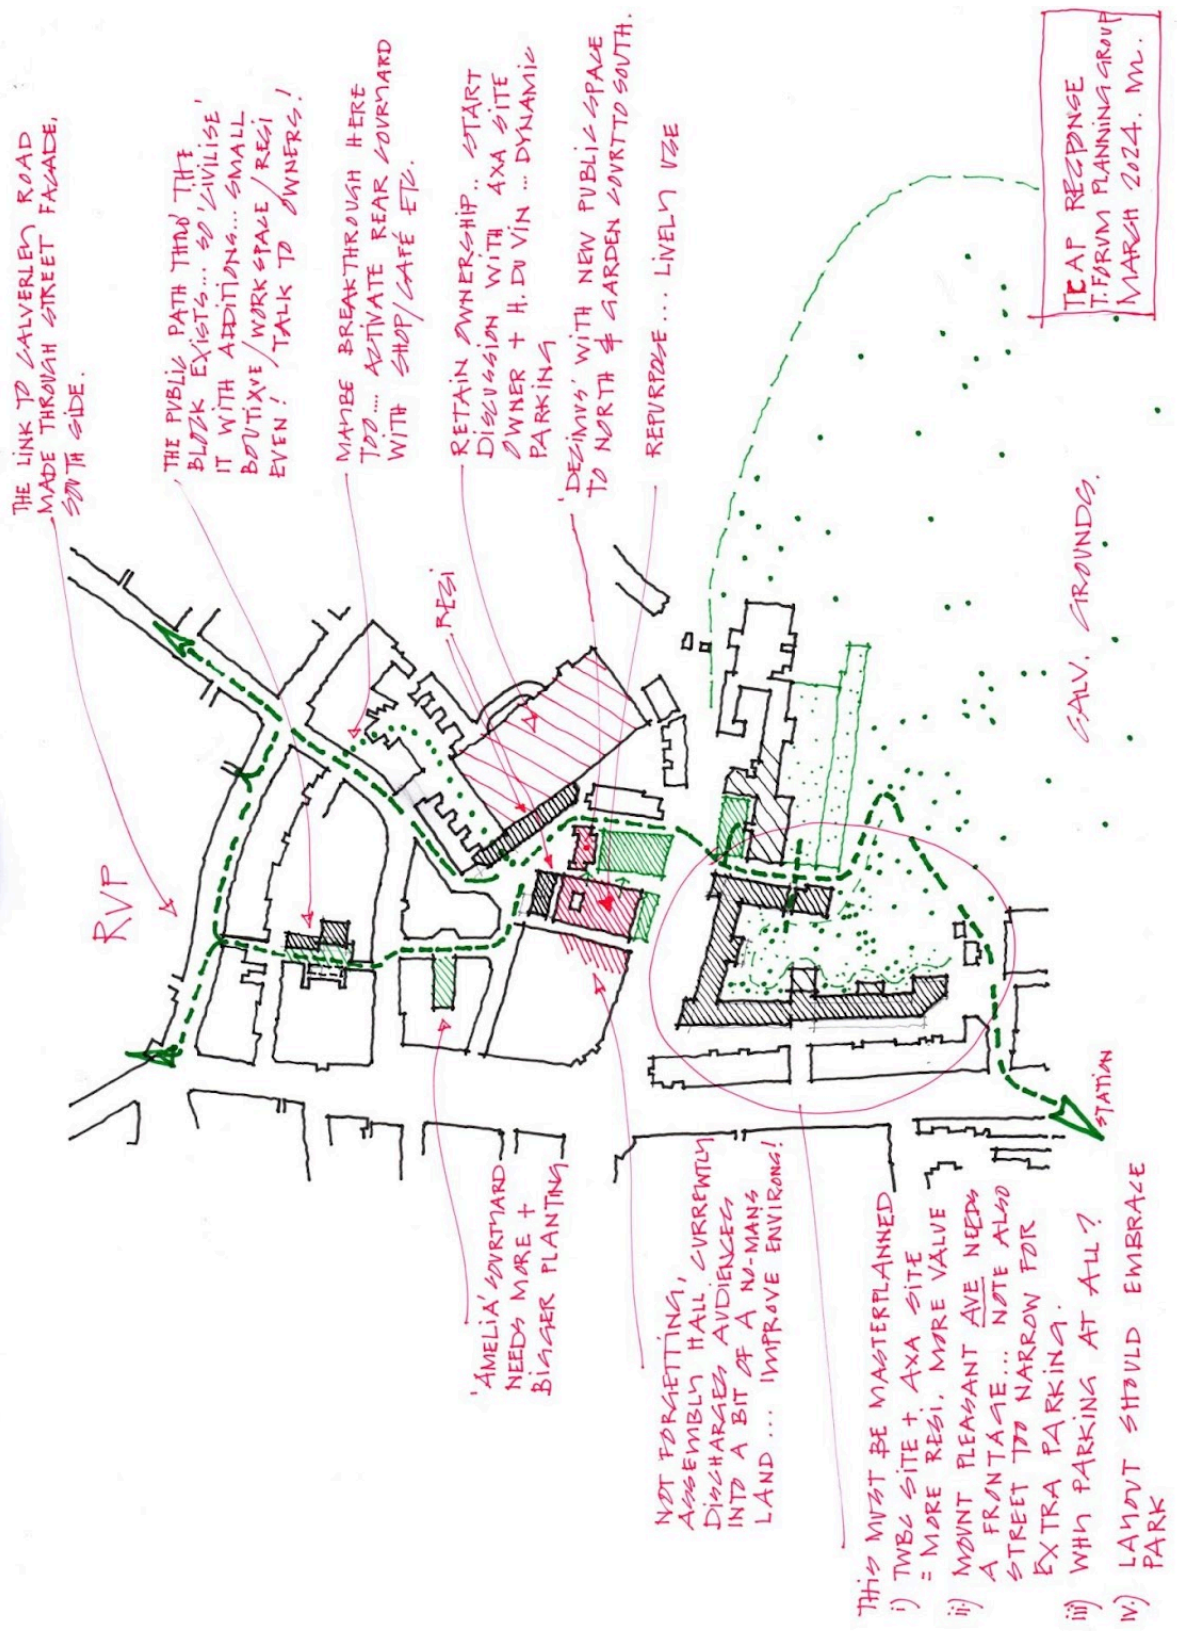 THE LINK TO CALVERLEY ROAD
MADE THROUGH STREET FACADE,
SOUTH SIDE.
THE PUBLIC PATH THRO' THE
BLOCK EXISTS... SO 'CIVILISE'
IT WITH ADDITIONS... SMALL
BOUTIQUE / WORKSPACE / RESI
EVEN! / TALK TO OWNERS!
MAYBE BREAKTHROUGH HERE
TOO.... ACTIVATE REAR COURTYARD
WITH SHOP/CAFÉ ETC.
RETAIN OWNERSHIP... START
DISCUSSION WITH AXA SITE
OWNER + H. DU VIN ... DYNAMIC
PARKING
'DECIMUS' WITH NEW PUBLIC SPACE
TO NORTH & GARDEN COURT TO SOUTH.
REPURPOSE... LIVELY USE
TCAP RESPONSE
T. FORUM PLANNING GROUP
MARCH 2024. M.
RVP
RESI
CALV. GROUNDS.
STATION
'AMELIA' COURTYARD
NEEDS MORE +
BIGGER PLANTING
NOT FORGETTING,
ASSEMBLY HALL CURRENTLY
DISCHARGES AUDIENCES
INTO A BIT OF A NO-MANS
LAND... IMPROVE ENVIRONS!
THIS MUST BE MASTERPLANNED
i) TWBC SITE + AXA SITE
= MORE RESI, MORE VALUE
ii) MOUNT PLEASANT AVE NEEDS
A FRONTAGE... NOTE ALSO
STREET TOO NARROW FOR
EXTRA PARKING.
iii) WHY PARKING AT ALL?
iv.) LAYOUT SHOULD EMBRACE
PARK